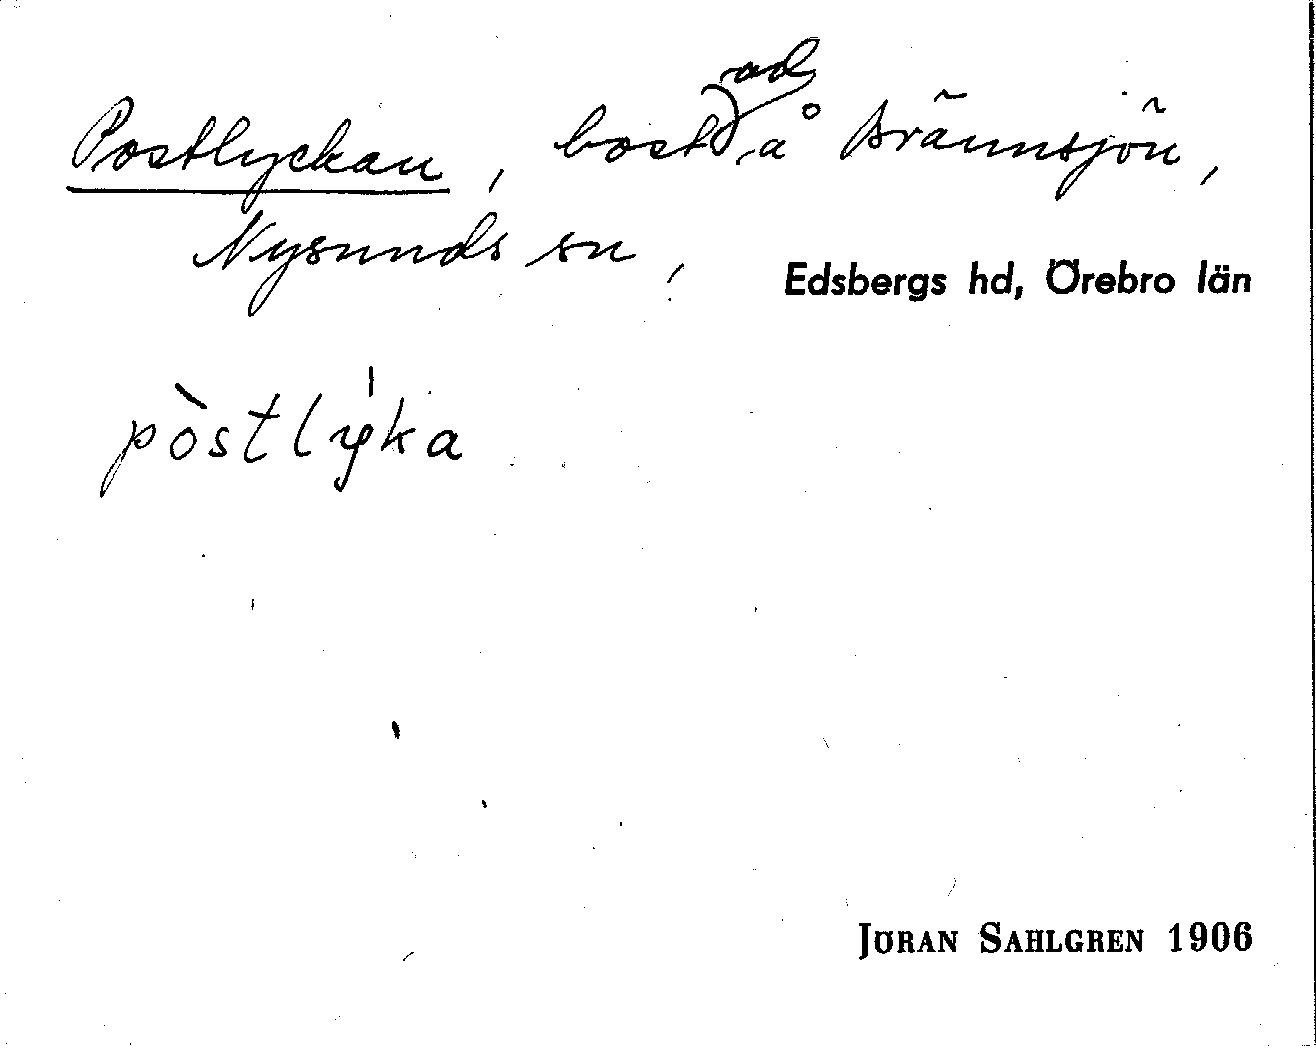 Postlyckan, bostad å Brännsjön,
Nysunds sn,
Edsbergs hd, Örebro län
pòstlýka
JÖRAN SAHLGREN 1906